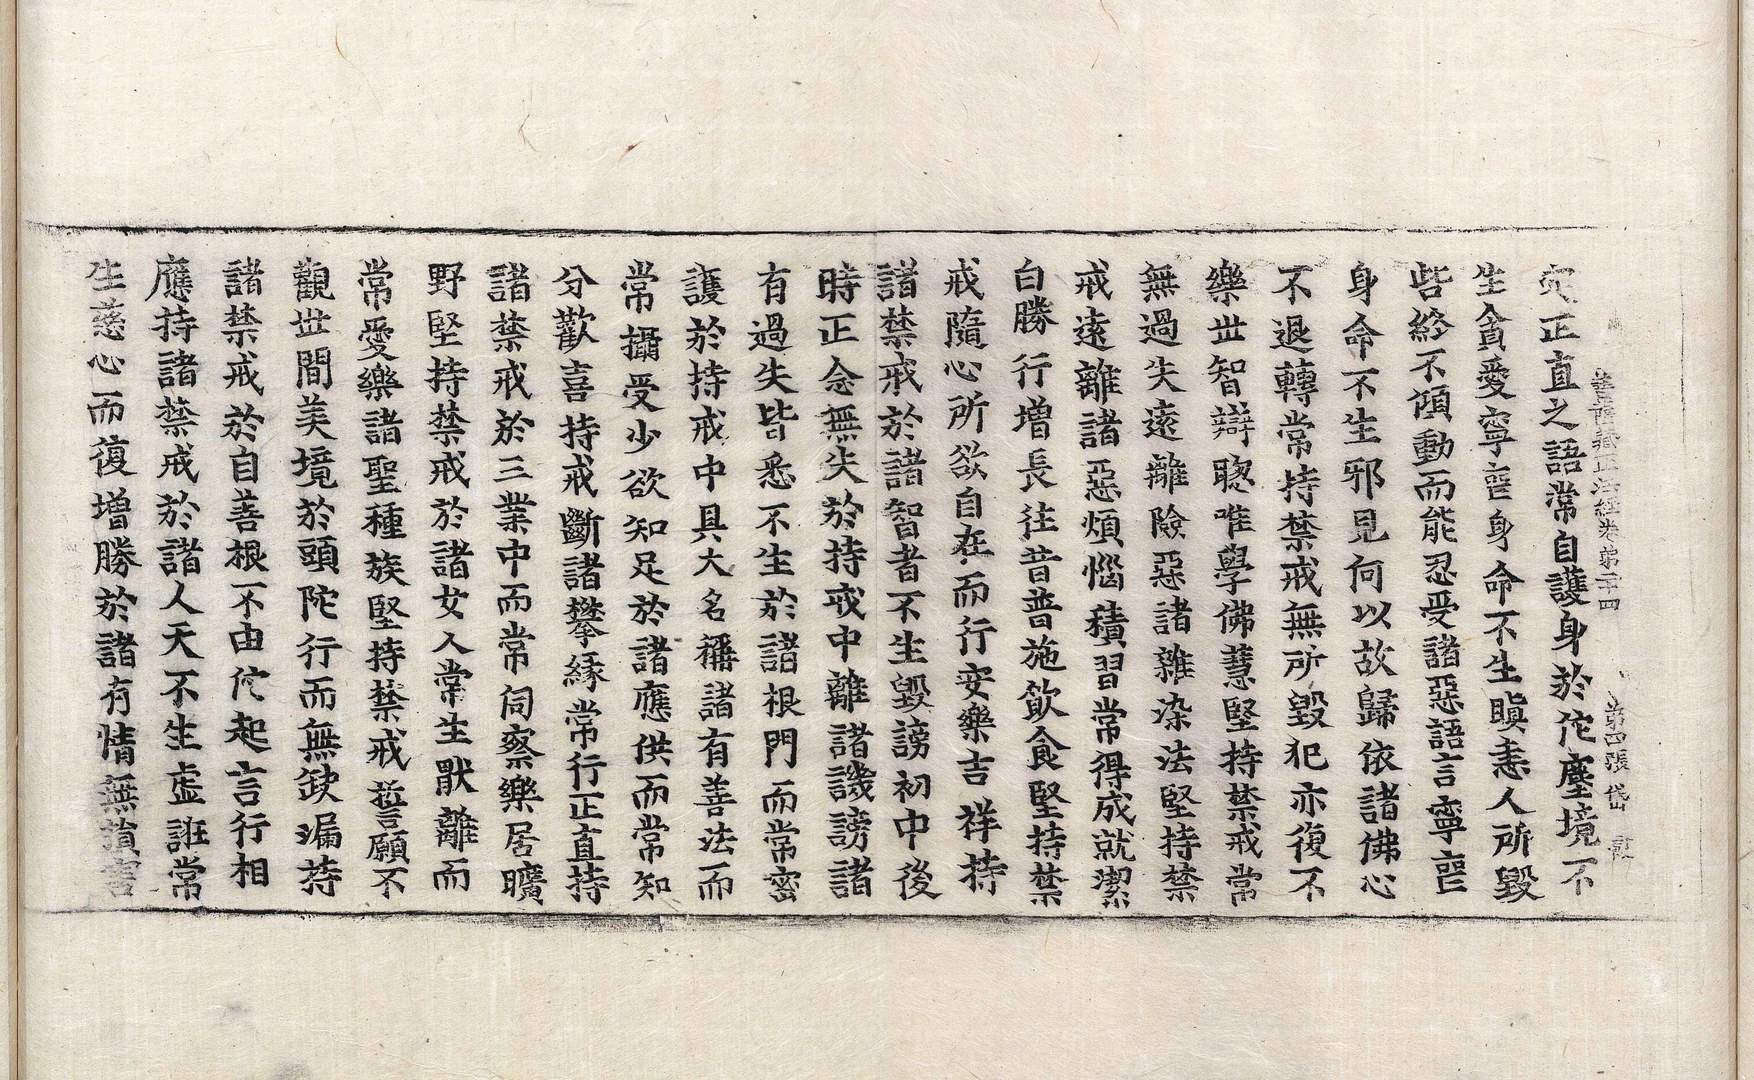 菩薩藏正法經卷第二十四 第四張 岱
定正直之語常自護身於佗塵境不
生貪愛寧喪身命不生瞋恚人所毀
呰終不傾動而能忍受諸惡語言寧喪
身命不生邪見何以故歸依諸佛心
不退轉常持禁戒無所毀犯亦復不
樂世智辯聦唯學佛慧堅持禁戒常
無過失遠離險惡諸雜染法堅持禁
戒遠離諸惡煩惱積習常得成就潔
白勝行增長往昔普施飲食堅持禁
戒隨心所欲自在而行安樂吉祥持
諸禁戒於諸智者不生毀謗初中後
時正念無失於持戒中離諸譏謗諸
有過失皆悉不生於諸根門而常密
護於持戒中具大名稱諸有善法而
常攝受少欲知足於諸應供而常知
分歡喜持戒斷諸攀緣常行正直持
諸禁戒於三業中而常伺察樂居曠
野堅持禁戒於諸女人常生猒離而
常愛樂諸聖種族堅持禁戒誓願不
觀世間美境於頭陀行而無缺漏持
諸禁戒於自善根不由佗起言行相
應持諸禁戒於諸人天不生虛誑常
生慈心而復增勝於諸有情無損害